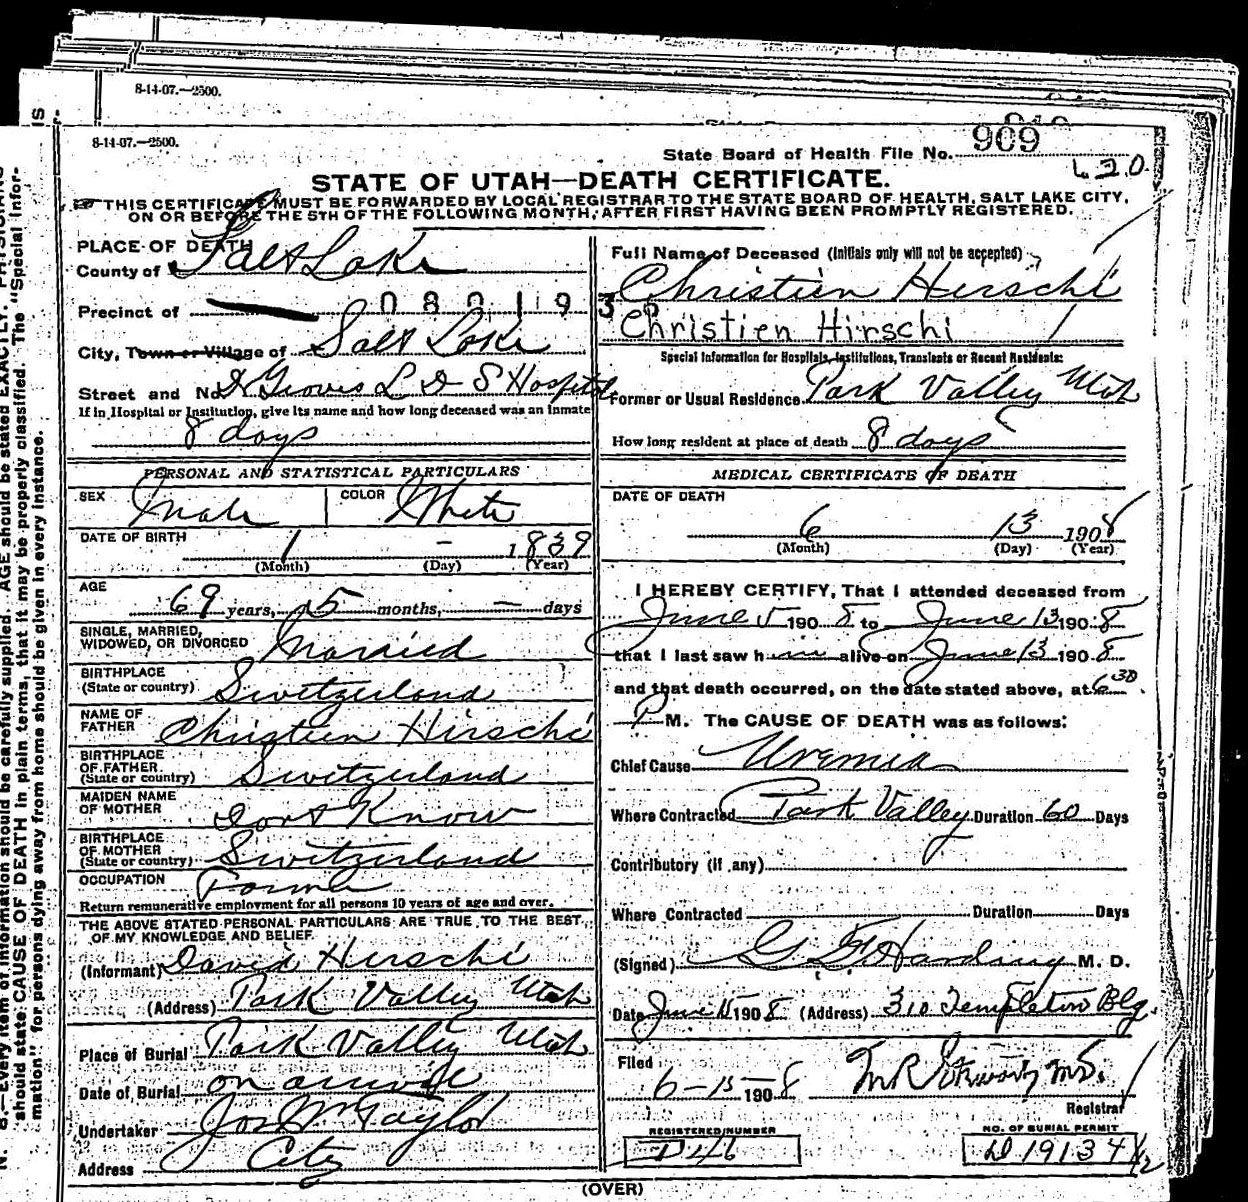 8-14-07.—2500.
8-14-07.—2500.
State Board of Health File No. 909
STATE OF UTAH—DEATH CERTIFICATE.
THIS CERTIFICATE MUST BE FORWARDED BY LOCAL REGISTRAR TO THE STATE BOARD OF HEALTH, SALT LAKE CITY,
ON OR BEFORE THE 5TH OF THE FOLLOWING MONTH, AFTER FIRST HAVING BEEN PROMPTLY REGISTERED.
PLACE OF DEATH
County of Salt Lake
Precinct of
City, Town or Village of Salt Lake
Street and No. Dr Groves L D S Hospital
If in Hospital or Institution, give its name and how long deceased was an inmate
8 days
PERSONAL AND STATISTICAL PARTICULARS
SEX Male COLOR White
DATE OF BIRTH 1 – 1839
(Month) (Day) (Year)
AGE
69 years, 5 months, — days
SINGLE, MARRIED,
WIDOWED, OR DIVORCED Married
BIRTHPLACE
(State or country) Switzerland
NAME OF
FATHER Christien Hirschi
BIRTHPLACE
OF FATHER
(State or country) Switzerland
MAIDEN NAME
OF MOTHER Dont Know
BIRTHPLACE
OF MOTHER
(State or country) Switzerland
OCCUPATION Farmer
Return remunerative employment for all persons 10 years of age and over.
THE ABOVE STATED PERSONAL PARTICULARS ARE TRUE TO THE BEST
OF MY KNOWLEDGE AND BELIEF.
(Informant) David Hirschi
(Address) Park Valley Utah
Place of Burial Park Valley Utah
Date of Burial on arrival
Undertaker Jos Wm Taylor
Address City
Full Name of Deceased (Initials only will not be accepted)
Christien Hirschi
Christien Hirschi
Special Information for Hospitals, Institutions, Transients or Recent Residents:
Former or Usual Residence Park Valley Utah
How long resident at place of death 8 days
MEDICAL CERTIFICATE OF DEATH
DATE OF DEATH
6 13 1908
(Month) (Day) (Year)
I HEREBY CERTIFY, That I attended deceased from
June 5 1908 to June 13 1908
that I last saw him alive on June 13 1908
and that death occurred, on the date stated above, at 6 30
P M. The CAUSE OF DEATH was as follows:
Chief Cause Uremia
Where Contracted Park Valley Duration 60 Days
Contributory (if any)
Where Contracted Duration Days
(Signed) G F Harding M. D.
Date June 15 1908 (Address) 310 Templeton Blg.
Filed
6-15-1908
Registrar
REGISTERED NUMBER
NO. OF BURIAL PERMIT
(OVER)
N. B.—Every item of information should be carefully supplied. AGE should be stated EXACTLY. PHYSICIANS
should state CAUSE OF DEATH in plain terms, that it may be properly classified. The "Special Infor-
mation" for persons dying away from home should be given in every instance.